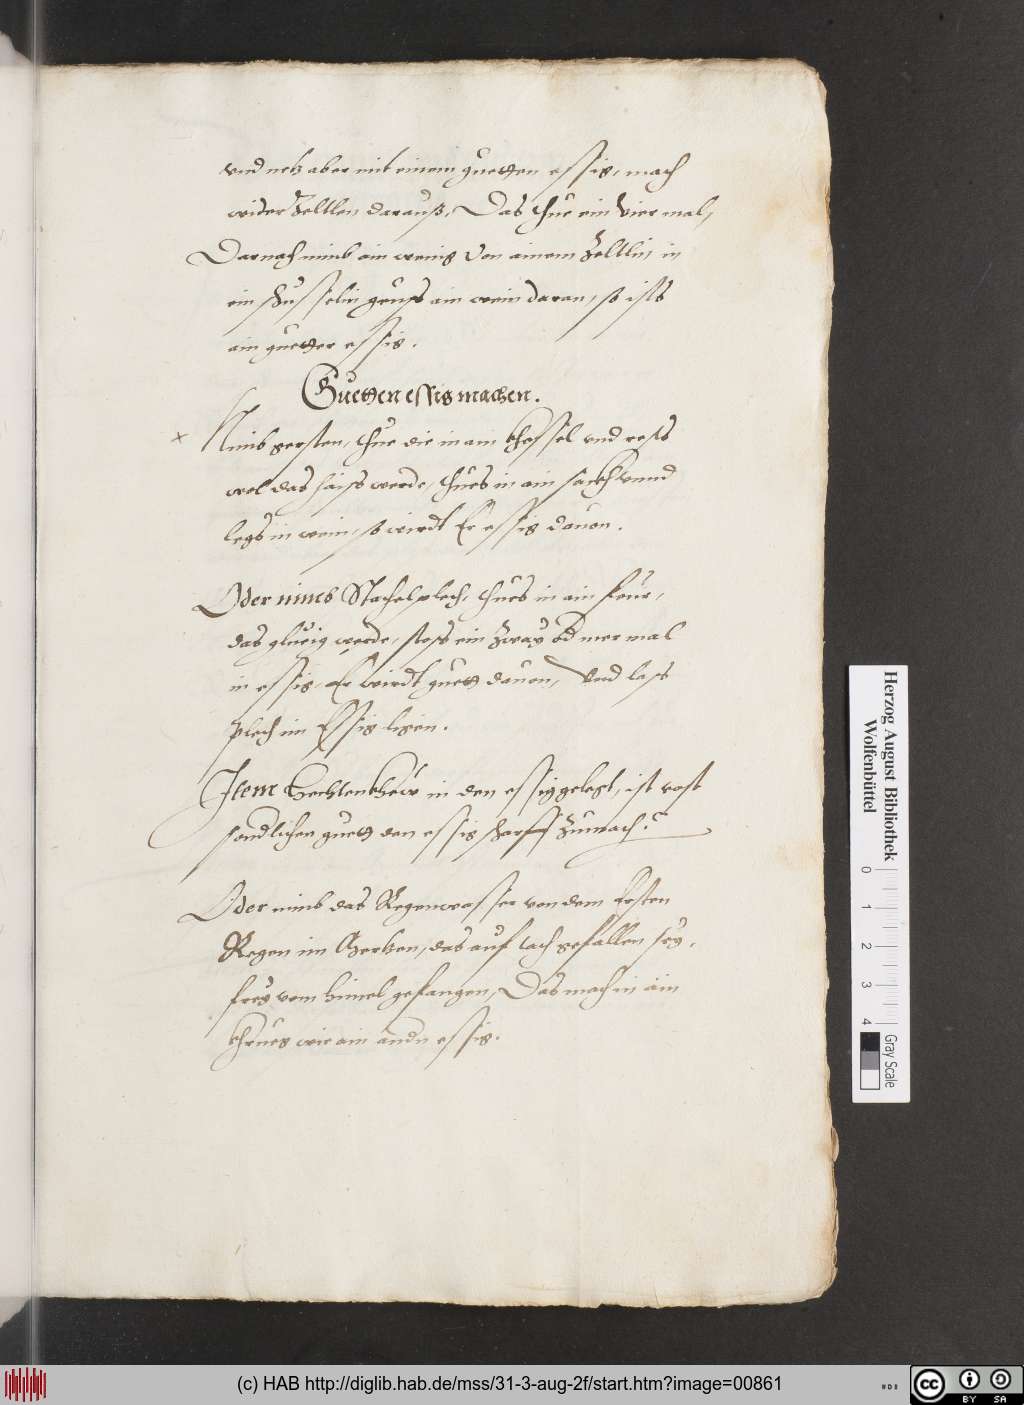 vnd netz aber mit einem guetten essig, mach
wider Zeltlen darauß, Das thue ein vier mal,
Darnach nimb ain wenig von ainem Zeltlin in
ein schusselin geuss ain wein daran, so ists
ain guetter essig.
Guetten essig machen.
Nimb gersten, thue die in ain khessel vnd rests
wol das haiss werde, thues in ain sackh vnnd
legs in wein, so wirdt Er essig dauon.
Oder nimb Stachelplech, thues in ain feur,
das glueig werde, stoss ein zway od mer mal
in essig, Er wirdt guett dauon, Vnd lass
plech im Essig ligen.
Item hechten in den essig gelegt, ist vast
guett den essig scharff zumach.
Oder nimb das Regenwasser von dem Ersten
Regen im Mertzen, das auf tach gefallen sey,
frey vom himel gefangen, Das mach in ain
khrueg wie ain andn essig.
Herzog August Bibliothek
Wolfenbüttel
0 1 2 3 4
Gray Scale
(c) HAB http://diglib.hab.de/mss/31-3-aug-2f/start.htm?image=00861
cc BY SA